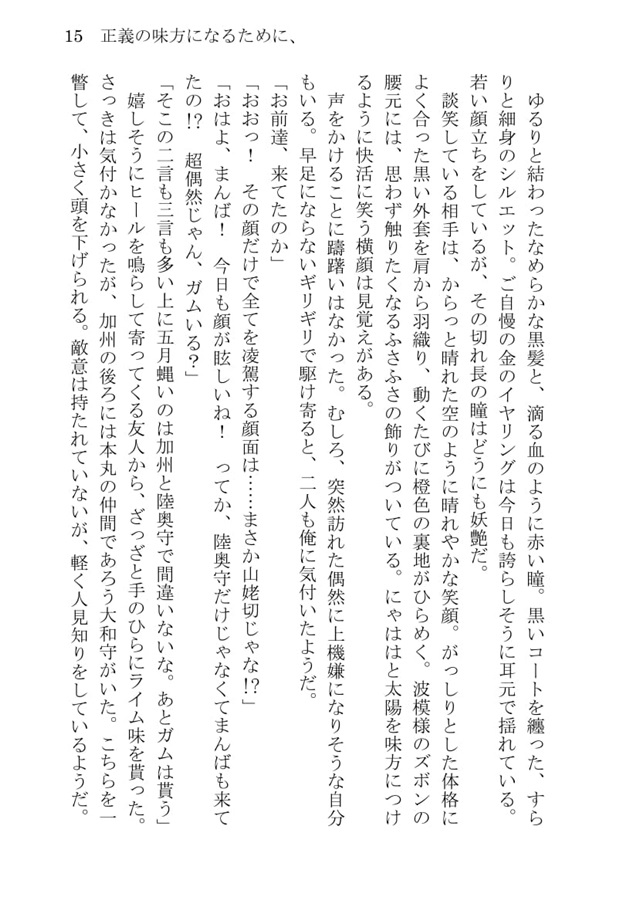 15　正義の味方になるために、
　ゆるりと結わったなめらかな黒髪と、滴る血のように赤い瞳。黒いコートを纏った、すら
りと細身のシルエット。ご自慢の金のイヤリングは今日も誇らしそうに耳元で揺れている。
若い顔立ちをしているが、その切れ長の瞳はどうにも妖艶だ。
　談笑している相手は、からっと晴れた空のように晴れやかな笑顔。がっしりとした体格に
よく合った黒い外套を肩から羽織り、動くたびに橙色の裏地がひらめく。波模様のズボンの
腰元には、思わず触りたくなるふさふさの飾りがついている。にゃははと太陽を味方につけ
るように快活に笑う横顔は見覚えがある。
　声をかけることに躊躇いはなかった。むしろ、突然訪れた偶然に上機嫌になりそうな自分
もいる。早足にならないギリギリで駆け寄ると、二人も俺に気付いたようだ。
「お前達、来てたのか」
「おおっ！　その顔だけで全てを凌駕する顔面は……まさか山姥切じゃな!?」
「おはよ、まんば！　今日も顔が眩しいね！　ってか、陸奥守だけじゃなくてまんばも来て
たの!?　超偶然じゃん、ガムいる？」
「そこの二言も三言も多い上に五月蝿いのは加州と陸奥守で間違いないな。あとガムは貰う」
　嬉しそうにヒールを鳴らして寄ってくる友人から、ざっざと手のひらにライム味を貰った。
さっきは気付かなかったが、加州の後ろには本丸の仲間であろう大和守がいた。こちらを一
瞥して、小さく頭を下げられる。敵意は持たれていないが、軽く人見知りをしているようだ。